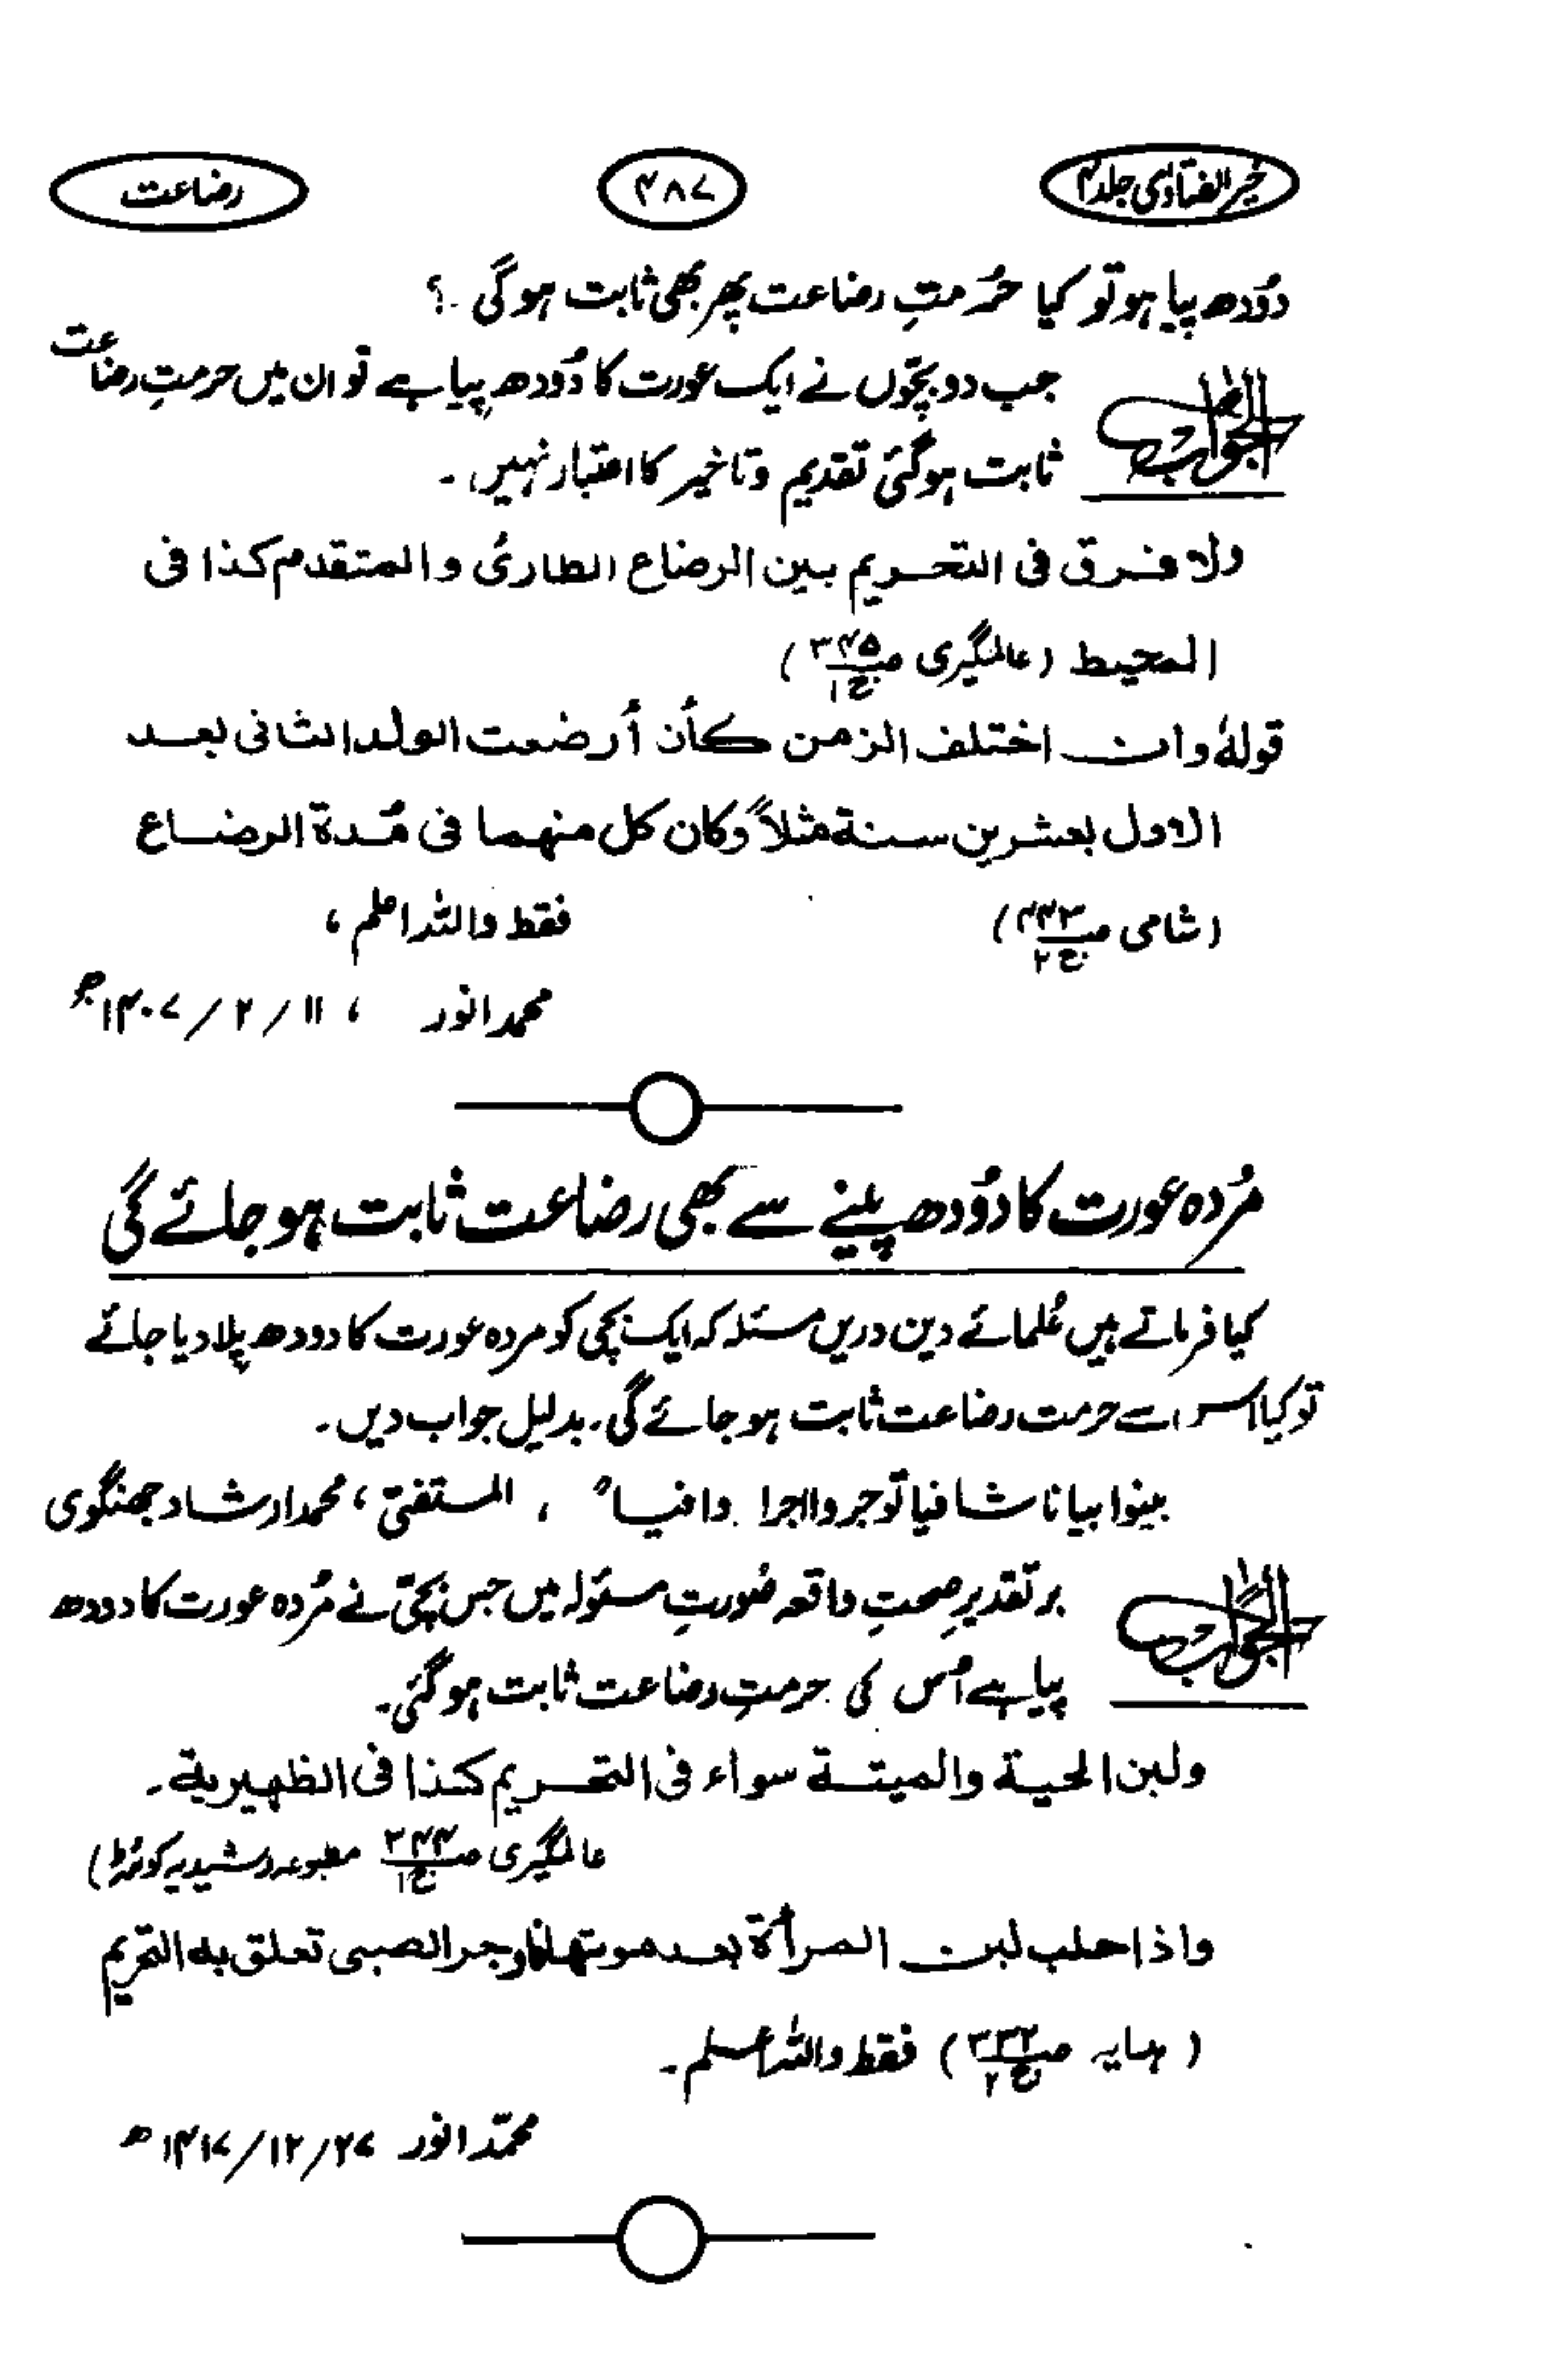 خیر الفتاویٰ جلد ۴
۴۸۷
رضاعت
دُودھ پیا ہو تو کیا حُرمتِ رضاعت پھر بھی ثابت ہوگی ۔؟
الجواب
جب دو بچّوں نے ایک عورت کا دُودھ پیا ہے تو ان میں حرمتِ رضاعت
ثابت ہوگئی تقدیم وتاخیر کا اعتبار نہیں ۔
ولا فرق فی التحریم بین الرضاع الطاریٔ والمتقدم کذا فی
المحیط (عالمگیری ص ۳۴۵ ج ۱)
قولہٗ وان اختلف الزمن کأن أرضعت الولد الثانی بعد
الاول بعشرین سنة مثلاً وکان کل منهما فی مُدة الرضاع
(شامی ص ج ۲)
فقط واللہ اعلم ،
محمد انور ، ۱۱/۲/۱۴۰۷ھ
مُردہ عورت کا دُودھ پینے سے بھی رضاعت ثابت ہو جائے گی
کیا فرماتے ہیں عُلمائے دین دریں مسئلہ کہ ایک بچّی کو مردہ عورت کا دودھ پلا دیا جائے
تو کیا اس سے حرمت رضاعت ثابت ہو جائے گی۔ بدلیل جواب دیں ۔
بینوا بیانا شافیا توجروا اجرا وافیاً ، المستفتی ، محمد ارشاد جھنگوی
الجواب
بر تقدیرِ صحتِ واقعہ صُورتِ مسئولہ میں جس بچّی نے مُردہ عورت کا دودھ
پیا ہے اُس کی حرمتِ رضاعت ثابت ہوگئی۔
ولبن الحیة والمیتة سواء فی التحریم کذا فی الظهیریة ۔
عالمگیری ص ۳۴۴ ج ۱ مطبوعہ رشیدیہ کوئٹہ)
واذا حلب لبن المرأة بعد موتها فاوجر الصبی تعلق به التحریم
(ہدایہ ص ج ۲) فقط واللہ اعلم ۔
محمّد انور ۲۷/۱۲/۱۴۱۷ھ